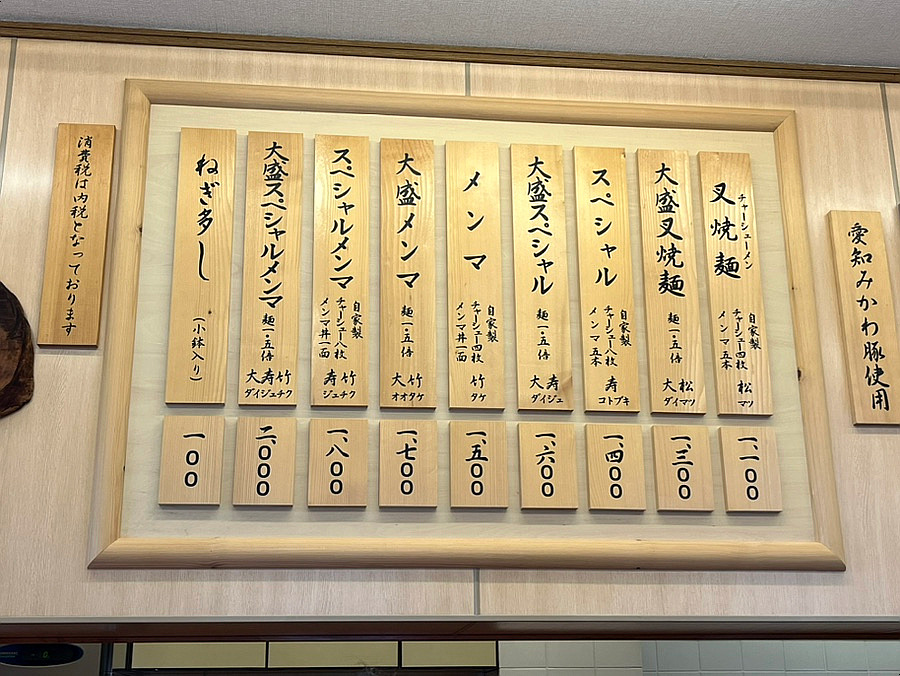 愛知みかわ豚使用
チャーシューメン
叉焼麺
自家製
チャーシュー四枚
メンマ 五本
松
マツ
一、一〇〇
大盛叉焼麺
麺一・五倍
大松
ダイマツ
一、三〇〇
スペシャル
自家製
チャーシュー八枚
メンマ 五本
寿
コトブキ
一、四〇〇
大盛スペシャル
麺一・五倍
大寿
ダイジュ
一、六〇〇
メンマ
自家製
チャーシュー四枚
メンマ丼一面
竹
タケ
一、五〇〇
大盛メンマ
麺一・五倍
大竹
オオタケ
一、七〇〇
スペシャルメンマ
自家製
チャーシュー八枚
メンマ丼一面
寿竹
ジュチク
一、八〇〇
大盛スペシャルメンマ
麺一・五倍
大寿竹
ダイジュチク
二、〇〇〇
ねぎ多し
(小鉢入り)
一〇〇
消費税は内税となっております